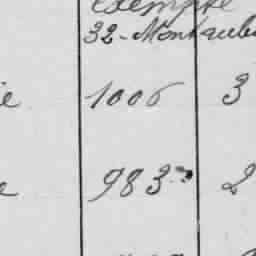 exempte
32 - Montauba
ie 1006 3
e 983 2